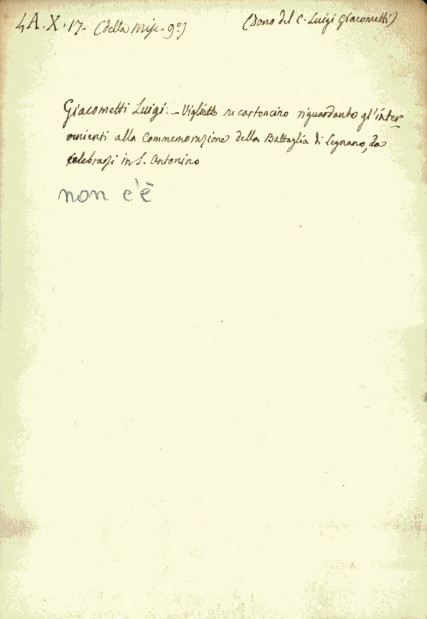 4A.X.17. (della Misc. 9ª) (Dono del C. Luigi Giacometti)
Giacometti Luigi. - Viglietto su cartoncino riguardante gl'inter-
venienti alla Commemorazione della Battaglia di Legnano, da
celebrarsi in S. Antonino
non c'è